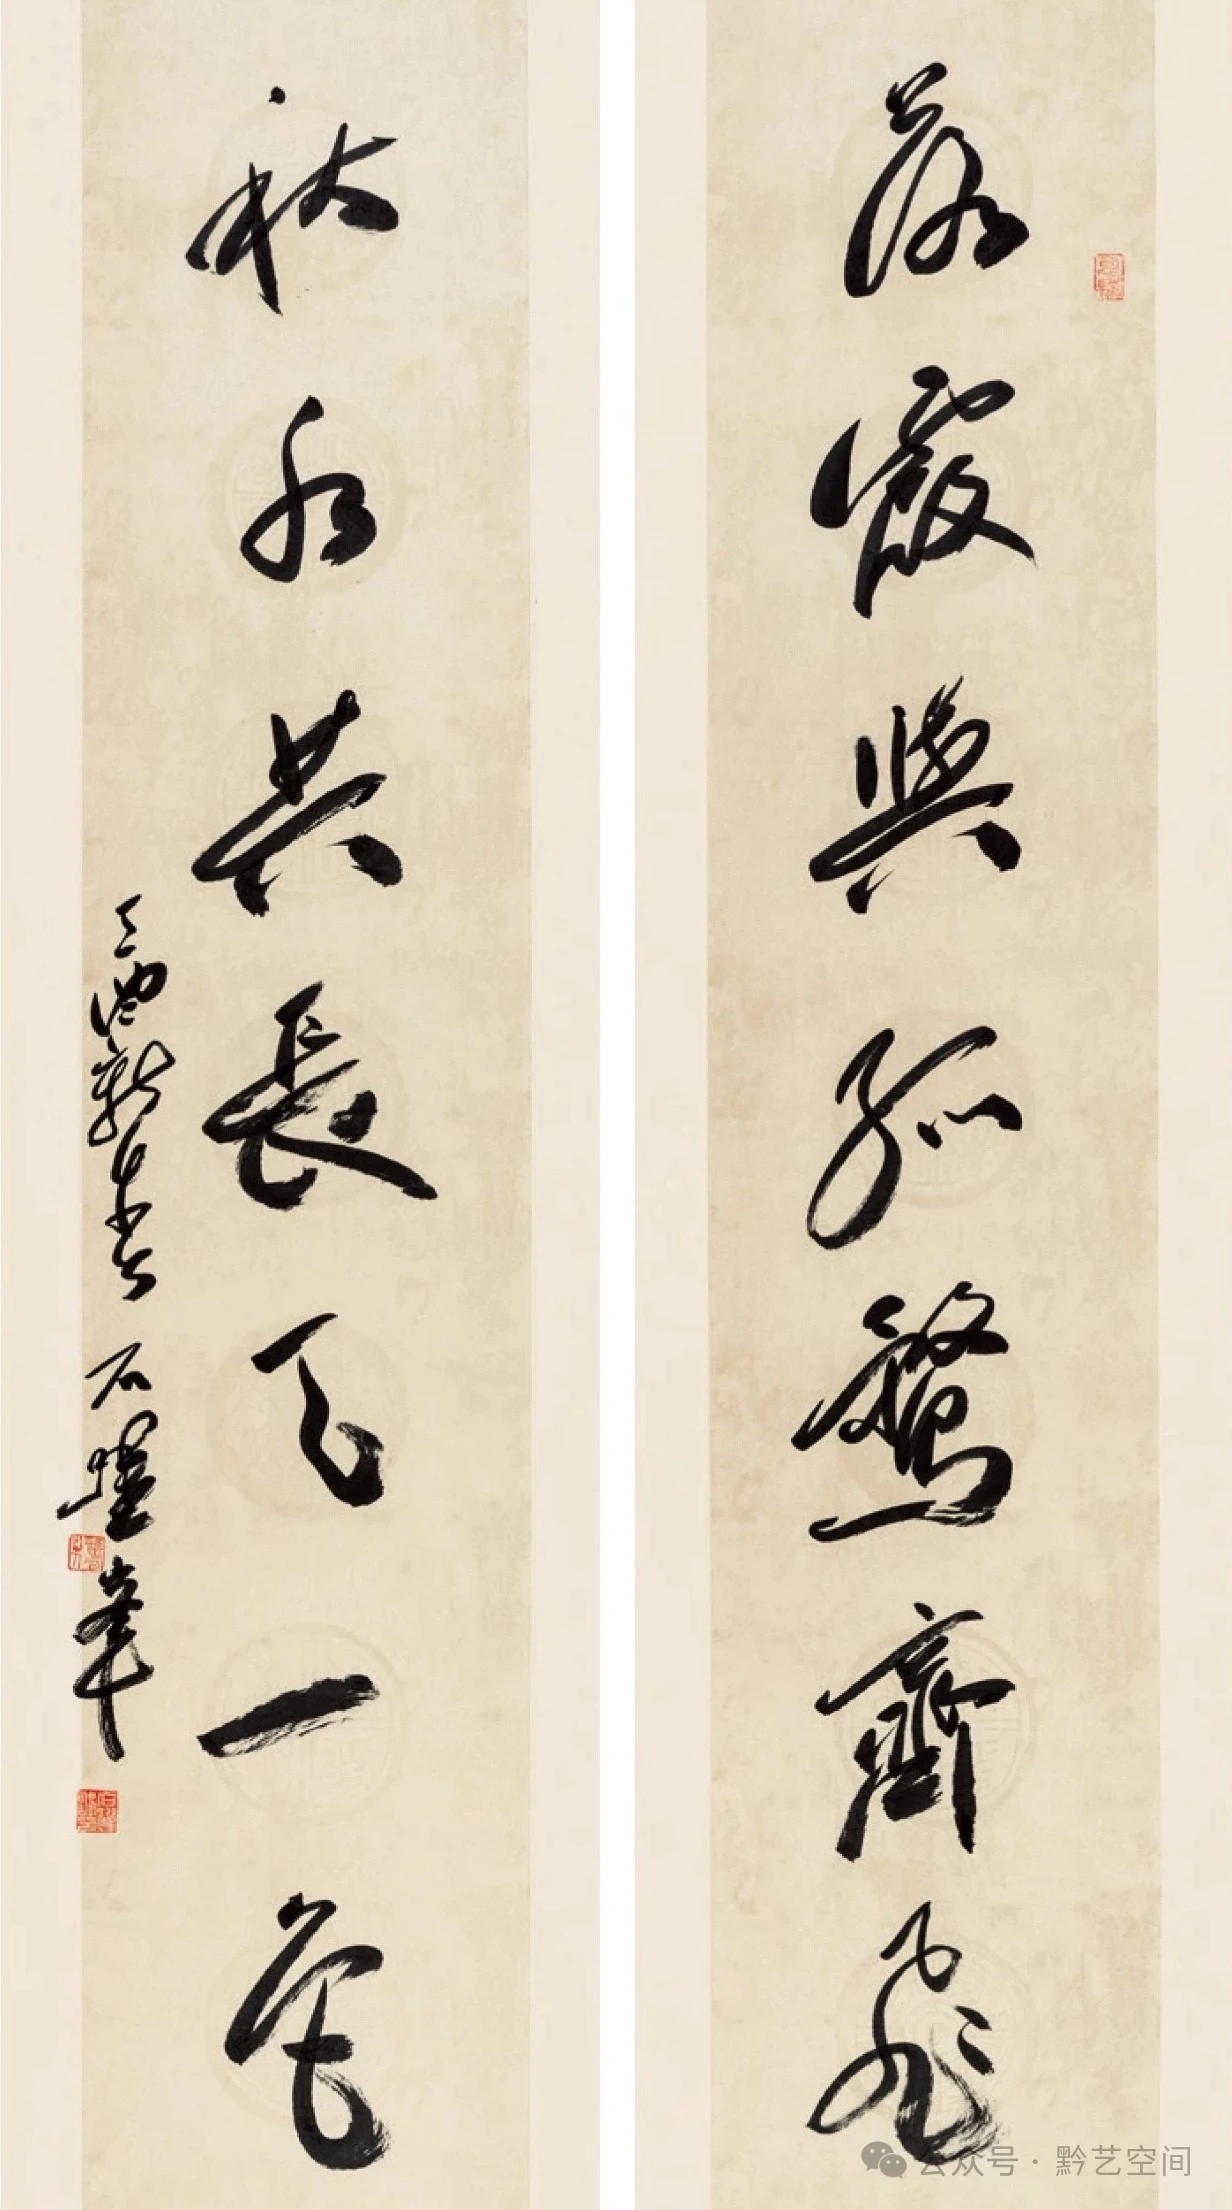 落霞與孤鶩齊飛
秋水共長天一色
新春 石壁峯
公众号·黔艺空间